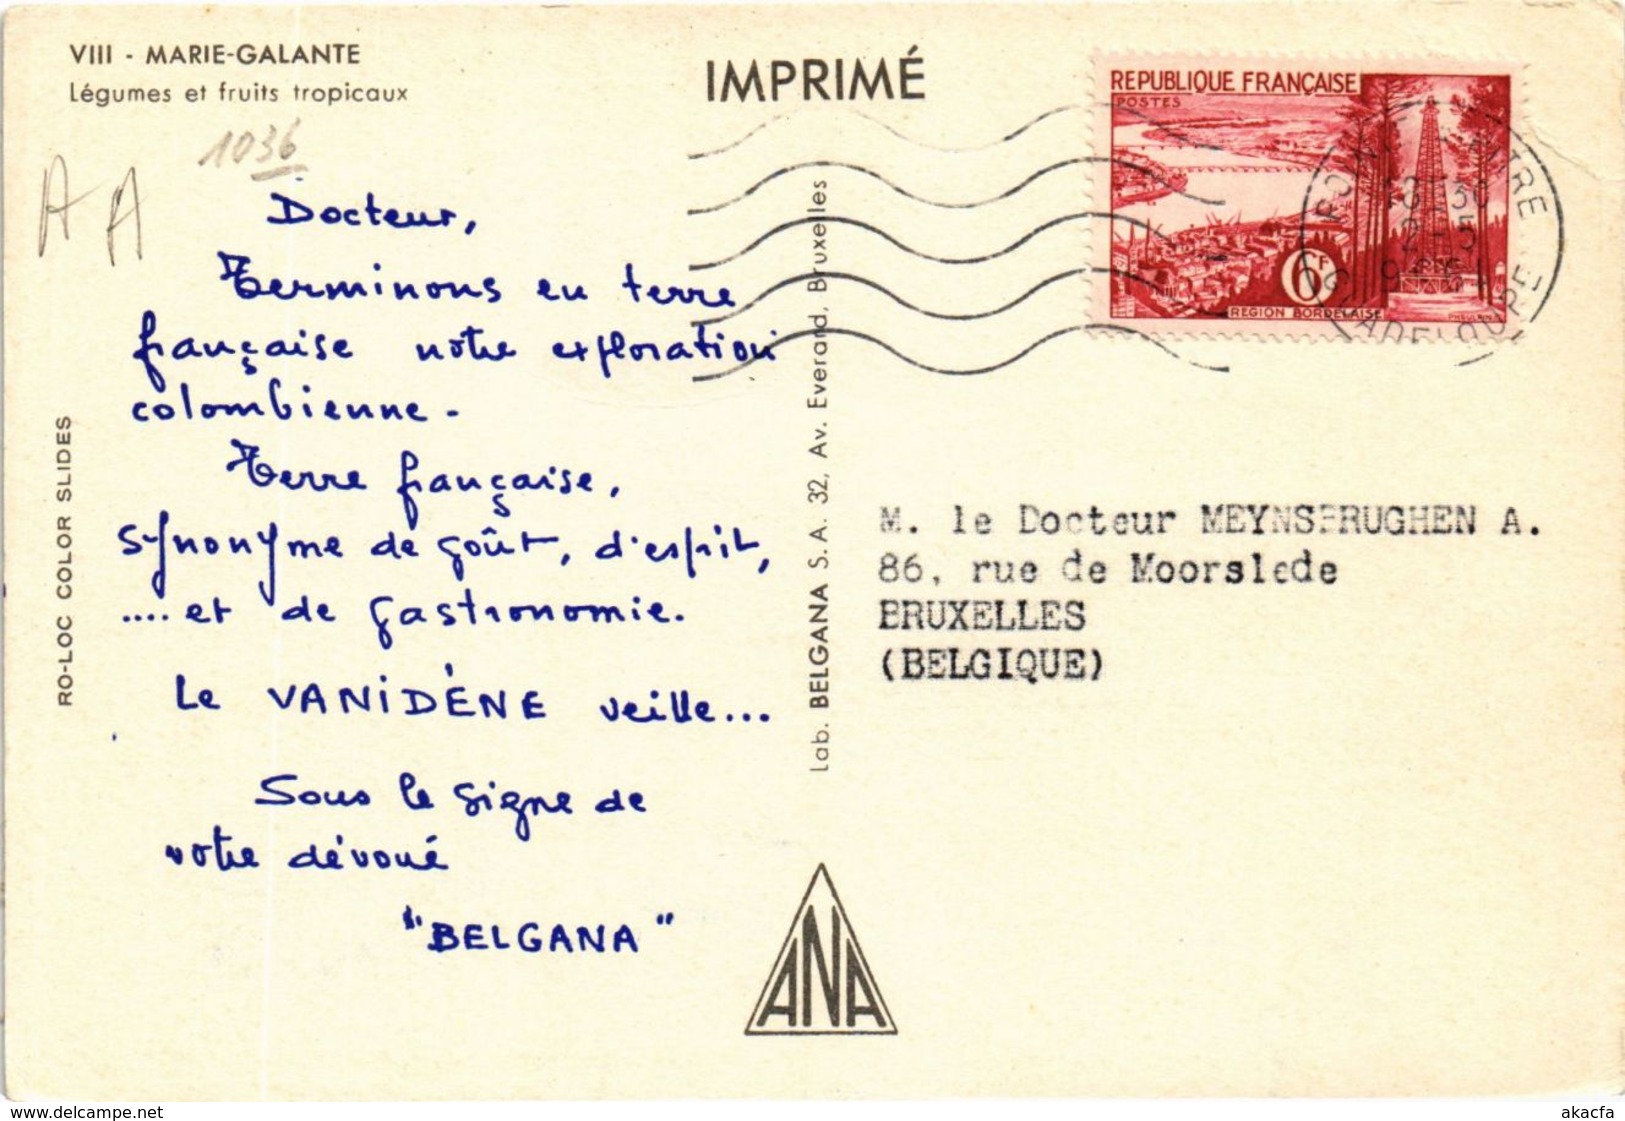 VIII - MARIE-GALANTE
Légumes et fruits tropicaux
1036
A A
IMPRIMÉ
REPUBLIQUE FRANÇAISE
POSTES
6F
REGION BORDELAISE
13 30
2-5
Docteur,
Terminons en terre
française notre exploration
colombienne.
Terre française,
synonyme de goût, d'esprit,
.... et de gastronomie.
Le VANIDÈNE veille...
Sous le signe de
votre dévoué
"BELGANA"
RO-LOC COLOR SLIDES
Lab. BELGANA S. A. 32, Av. Everard, Bruxelles
M. le Docteur MEYNSBRUGHEN A.
86, rue de Moorslede
BRUXELLES
(BELGIQUE)
ANA
www.delcampe.net
akacfa